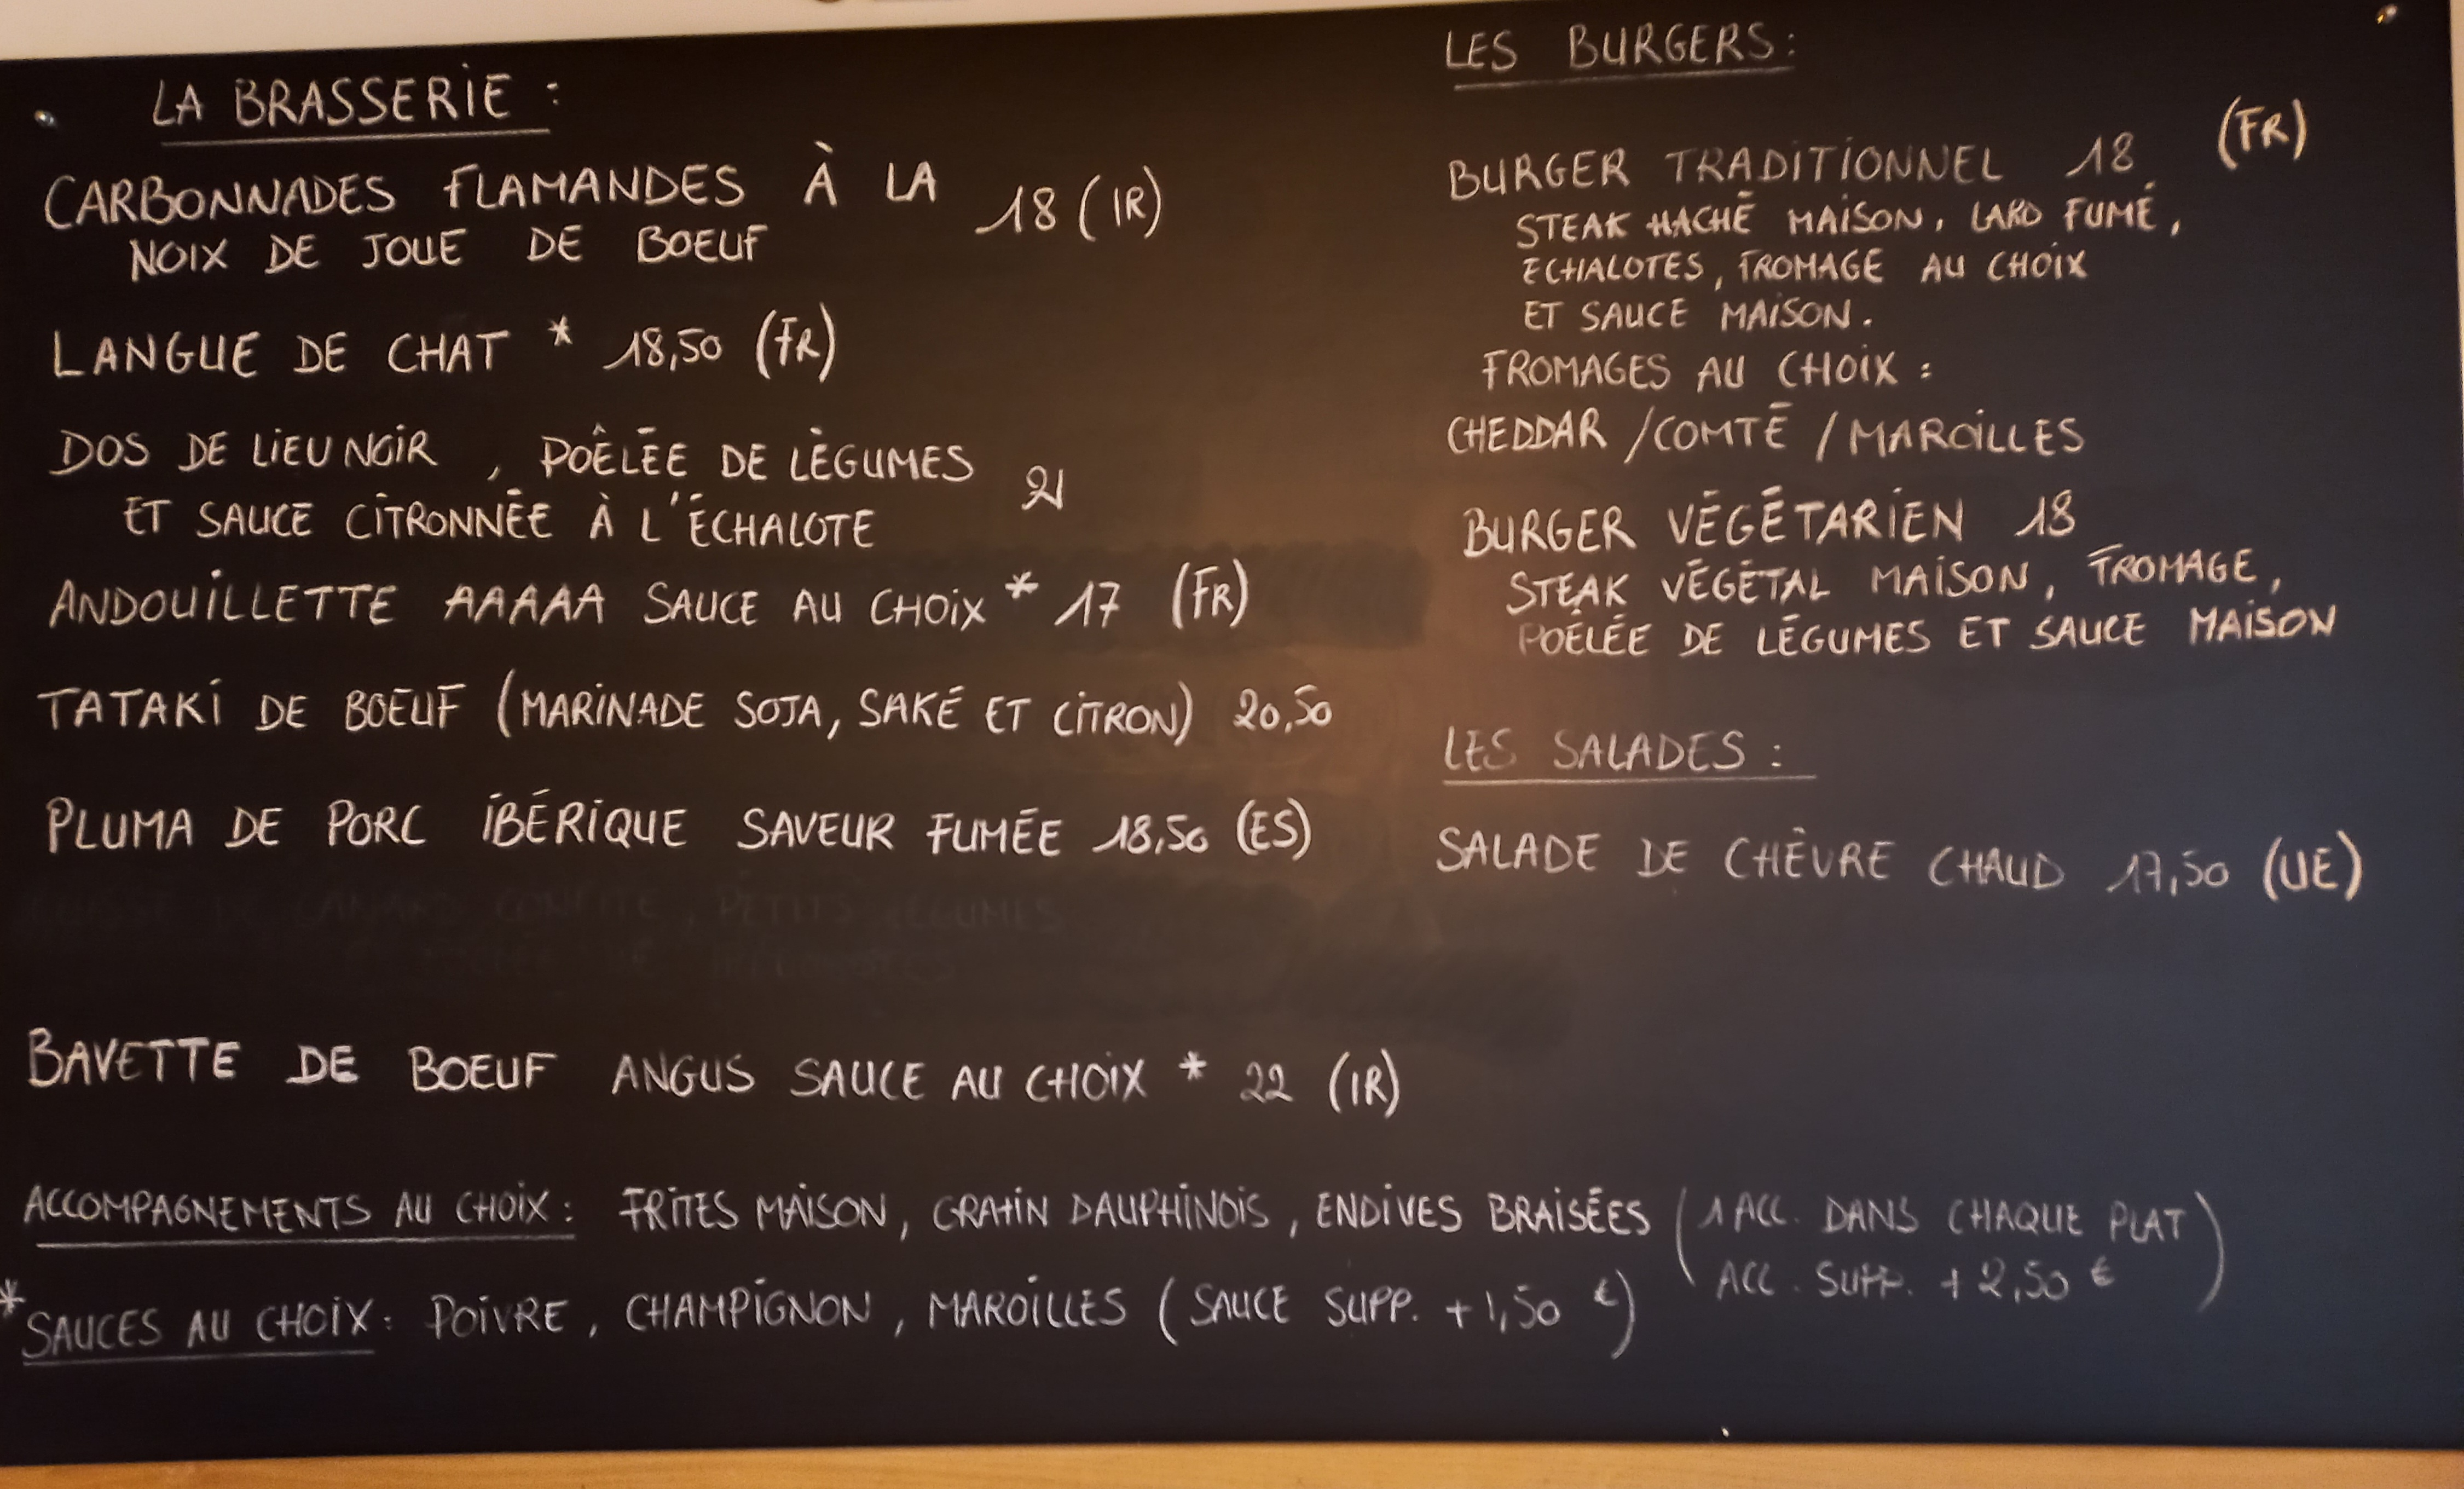 LA BRASSERIE :
CARBONNADES FLAMANDES À LA
NOIX DE JOUE DE BOEUF 18 (IR)
LANGUE DE CHAT * 18,50 (FR)
DOS DE LIEU NOIR , POÊLÉE DE LÉGUMES
ET SAUCE CITRONNÉE À L'ÉCHALOTE 21
ANDOUILLETTE AAAAA SAUCE AU CHOIX * 17 (FR)
TATAKI DE BOEUF (MARINADE SOJA, SAKÉ ET CITRON) 20,50
PLUMA DE PORC IBÉRIQUE SAVEUR FUMÉE 18,50 (ES)
BAVETTE DE BOEUF ANGUS SAUCE AU CHOIX * 22 (IR)
LES BURGERS :
BURGER TRADITIONNEL 18 (FR)
STEAK HACHÉ MAISON, LARD FUMÉ,
ECHALOTES, FROMAGE AU CHOIX
ET SAUCE MAISON.
FROMAGES AU CHOIX :
CHEDDAR / COMTÉ / MAROILLES
BURGER VÉGÉTARIEN 18
STEAK VÉGÉTAL MAISON, FROMAGE,
POÉLÉE DE LÉGUMES ET SAUCE MAISON
LES SALADES :
SALADE DE CHÈVRE CHAUD 17,50 (UE)
ACCOMPAGNEMENTS AU CHOIX : FRITES MAISON, GRATIN DAUPHINOIS, ENDIVES BRAISÉES (1 ACC. DANS CHAQUE PLAT
ACC. SUPP. + 2,50 €)
* SAUCES AU CHOIX : POIVRE, CHAMPIGNON, MAROILLES (SAUCE SUPP. + 1,50 €)